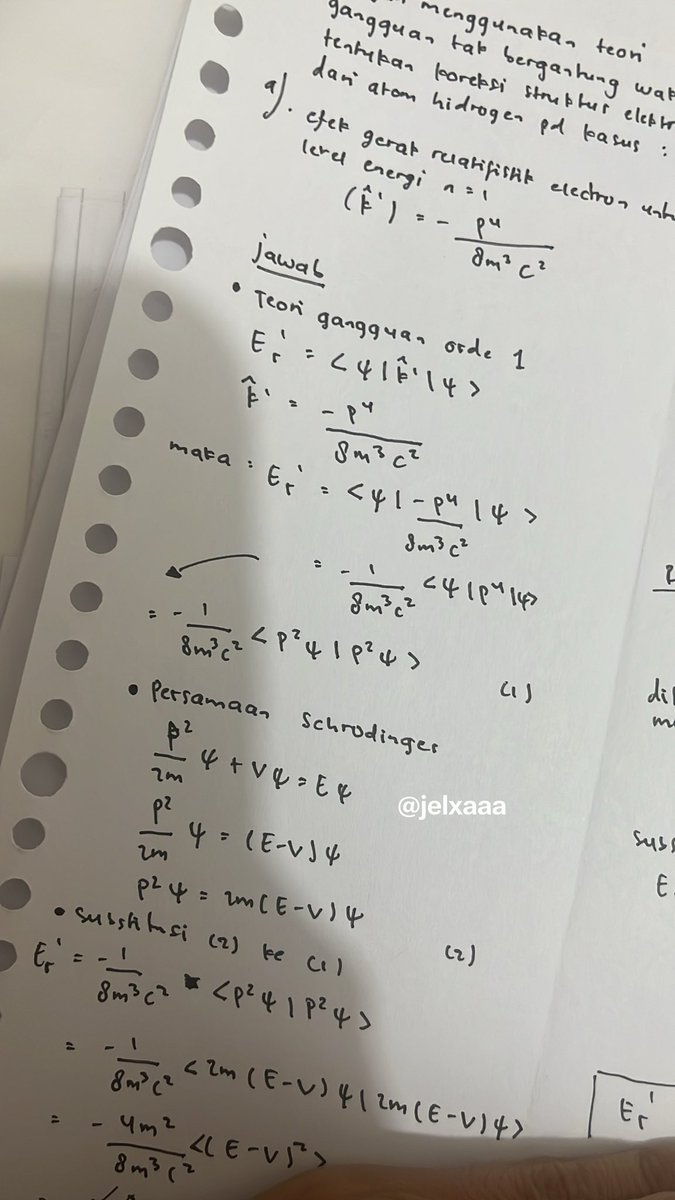 menggunakan teori
gangguan tak bergantung wak
tentukan koreksi struktur elektr
dari atom hidrogen pd kasus :
a). efek gerak relatifistik electron untu
level energi n = 1
(k̂') = - p⁴ / 8m³c²
jawab
• Teori gangguan orde 1
Er' = <ψ | k̂' | ψ>
k̂' = -p⁴ / 8m³c²
maka : Er' = <ψ | -p⁴ / 8m³c² | ψ>
= - 1 / 8m³c² <ψ | p⁴ | ψ>
= - 1 / 8m³c² <p²ψ | p²ψ> (1)
• Persamaan Schrodinger
p² / 2m ψ + Vψ = Eψ
p² / 2m ψ = (E-V)ψ
p²ψ = 2m(E-V)ψ (2)
• Substitusi (2) ke (1)
Er' = - 1 / 8m³c² <p²ψ | p²ψ>
= - 1 / 8m³c² <2m(E-V)ψ | 2m(E-V)ψ>
= - 4m² / 8m³c² <(E-V)²>
@jelxaaa
dil
m
Subs
E
Er'